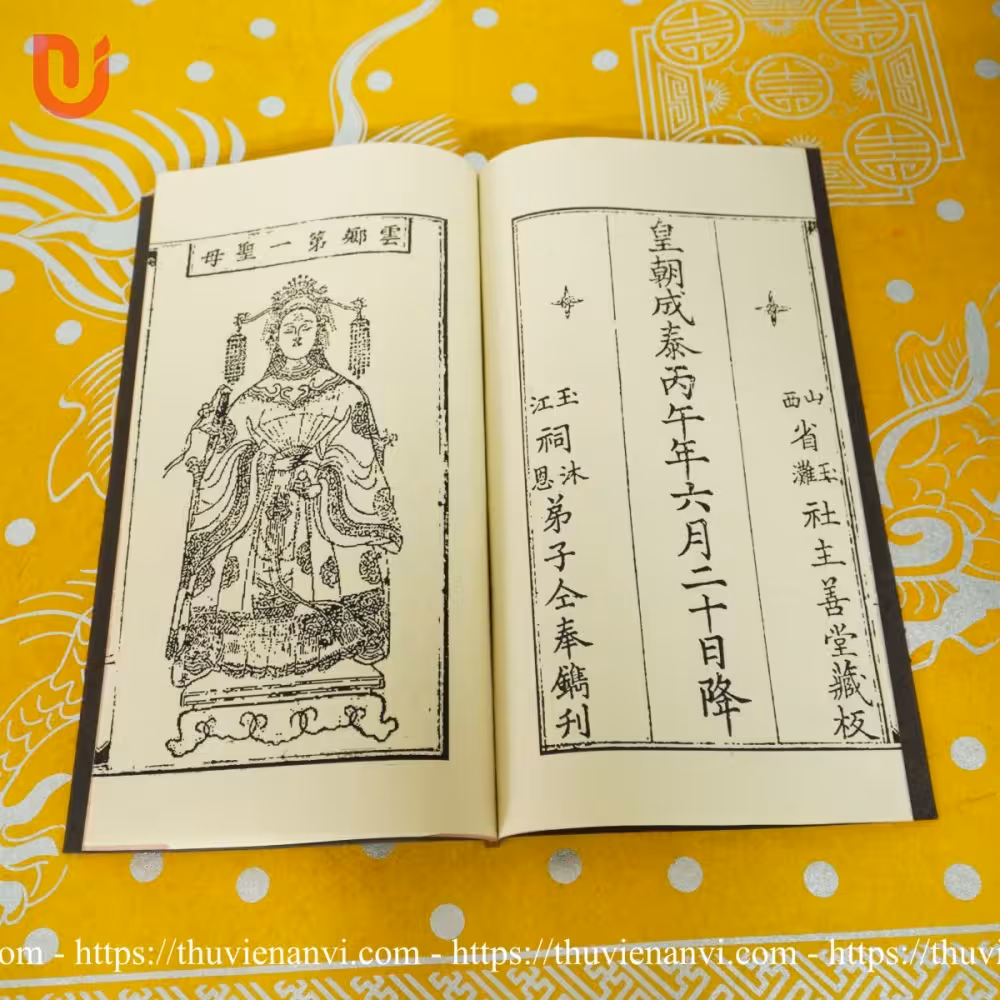 雲鄉第一聖母
山西省玉灘社主善堂藏板
皇朝成泰丙午年六月二十日降
玉江祠沐恩弟子仝奉鐫刊
om - https://thuvienanvi.com - https://thuvienanvi.com - https://thuvi